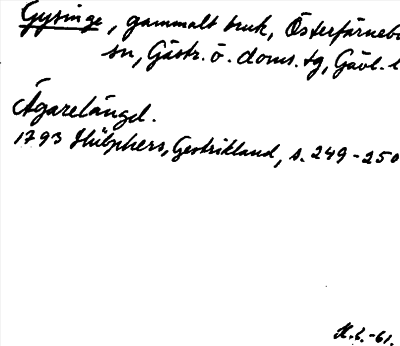 Gysinge, gammalt bruk, Österfärnebo
sn, Gästr. ö. doms. tg, Gävl. l
Ägarelängd.
1793 Hülphers, Gestrikland, s. 249-250
H.L.-61.